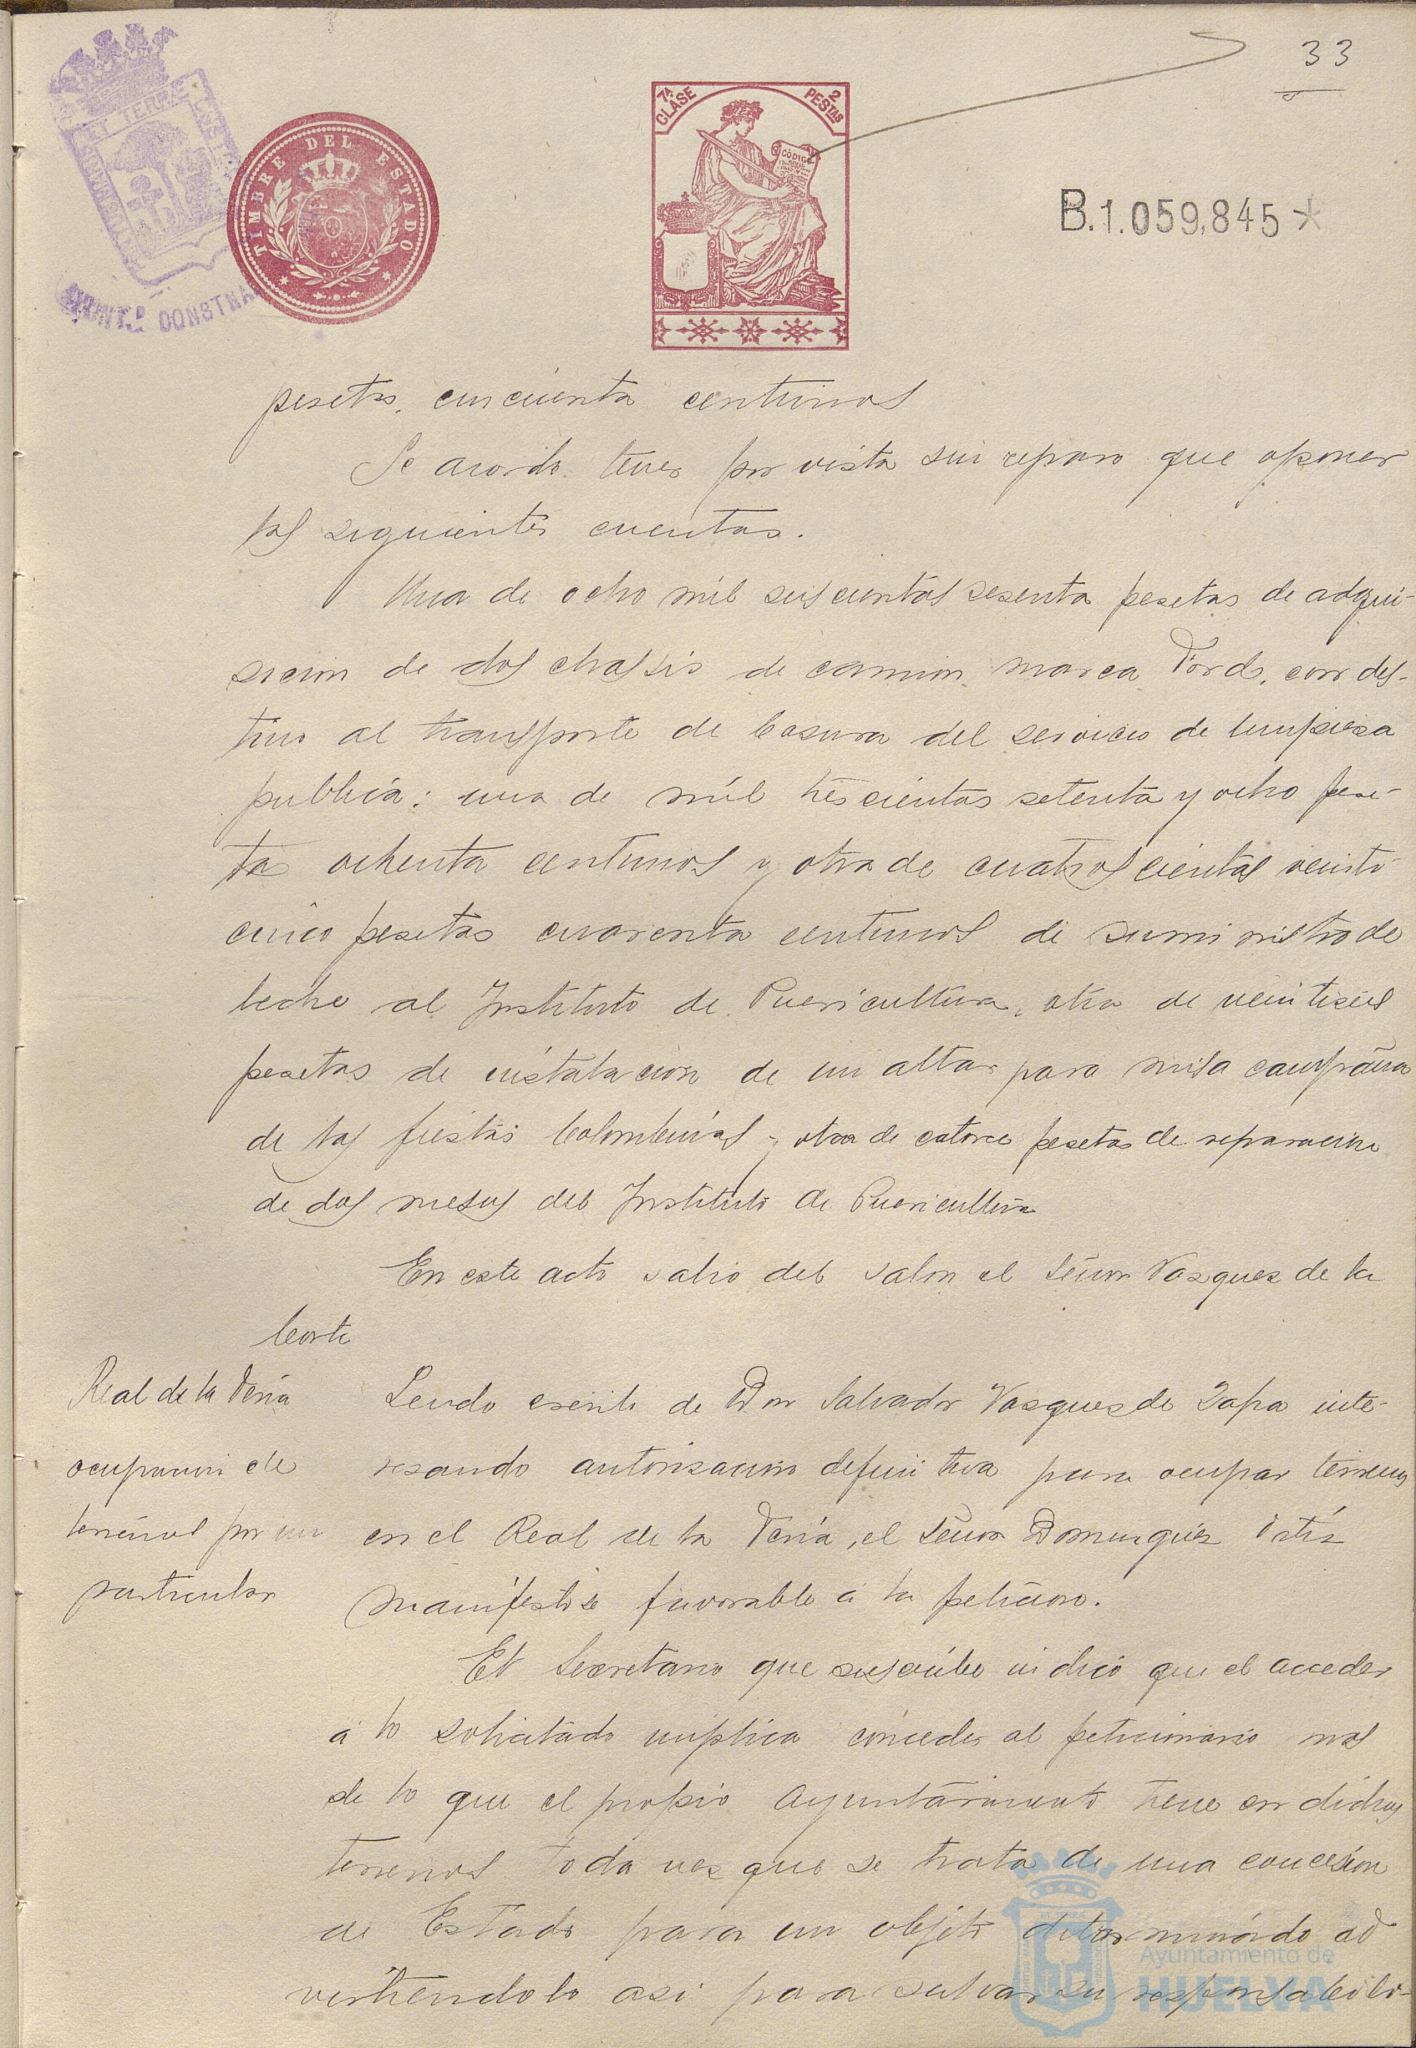 33
TIMBRE DEL ESTADO
7ª CLASE
2 PESTAS
CÓDIGO
B.1.059,845*
AYUNTº CONSTNAL
pesetas, cincuenta centimos
Se acordo tener por vista sin reparo que oponer
las siguientes cuentas.
Una de ocho mil seiscientas sesenta pesetas de adqui-
sicion de dos chassis de camion marca Ford, con des-
tino al transporte de basura del servicio de limpieza
publica; una de mil trescientas setenta y ocho pese-
tas ochenta centimos y otra de cuatroscientas veinte
cinco pesetas cuarenta centimos de suministro de
leche al Instituto de Puericultura, otra de veintiseis
pesetas de instalacion de un altar para misa campaña
de las fiestas Colombinas y otra de catorce pesetas de reparacion
de dos mesas del Instituto de Puericultura
En este acto salio del salon el Señor Vazquez de la
Corte
Real de la Feria
ocupacion de
terrenos por un
particular
Leido escrito de Don Salvador Vazquez de Zapa inte-
resando autorizacion definitiva para ocupar terrenos
en el Real de la Feria, el Señor Dominguez Ortiz
manifestose favorable a la peticion.
El Secretario que suscribe indicó que el acceder
a lo solicitado implica conceder al peticionario mas
de lo que el propio Ayuntamiento tiene en dichos
terrenos toda vez que se trata de una concesion
de Estado para un objeto determinado ad
virtiendolo asi para salvar su responsabili-
Ayuntamiento de
HUELVA